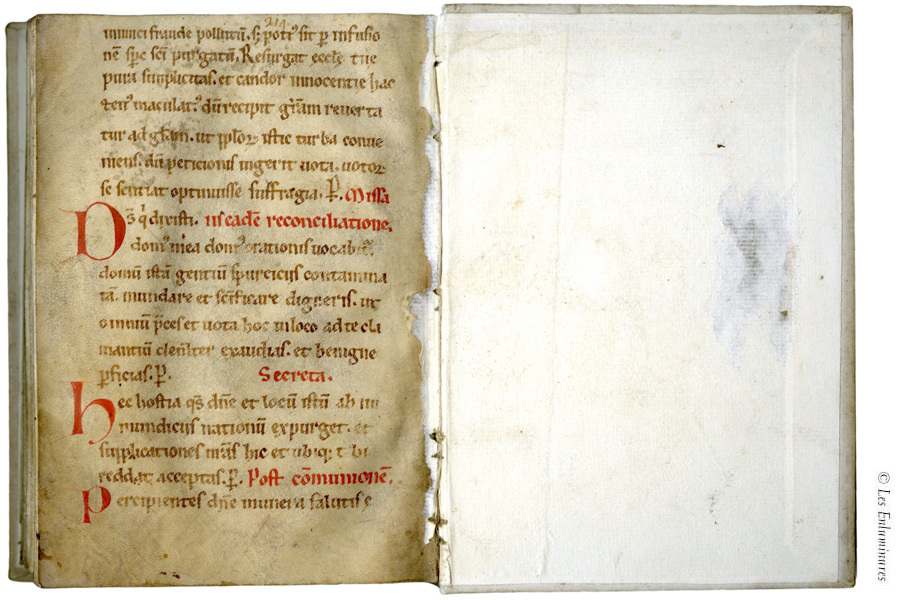 214
inimici fraude pollutū. s; poti9 sit p infusio
nē sp̄c sc̄i purgatū. Resurgat eccl̄e tue
pura simplicitas. et candor innocentie hac
ten9 maculat9. dū recipit gr̄am reverta
tur ad gl̄iam. ut pplo istic turba conve
niens. dū peticionis ingerit vota. voto
se sentiat optinuisse suffragia. P. Missa
Ds̄ qi dixisti. in eadē reconciliatione.
dom9 mea dom9 orationis vocabit.
domū istā gentiū spurciciis contamina
tā. mundare et sc̄ificare digneris. ut
omniū p̄ces et vota hoc in loco ad te cla
mantiū clem̄ter exaudias. et benigne
pficias. P. Secreta.
Hec hostia qs̄ dn̄e et locū istū ab in
mundiciis nationū expurget. et
supplicationes n̄ras hic et ubiq; ti bi
reddat acceptas. P. Post cōmunionē.
Percipientes dn̄e munera salutis e
© Les Enluminures